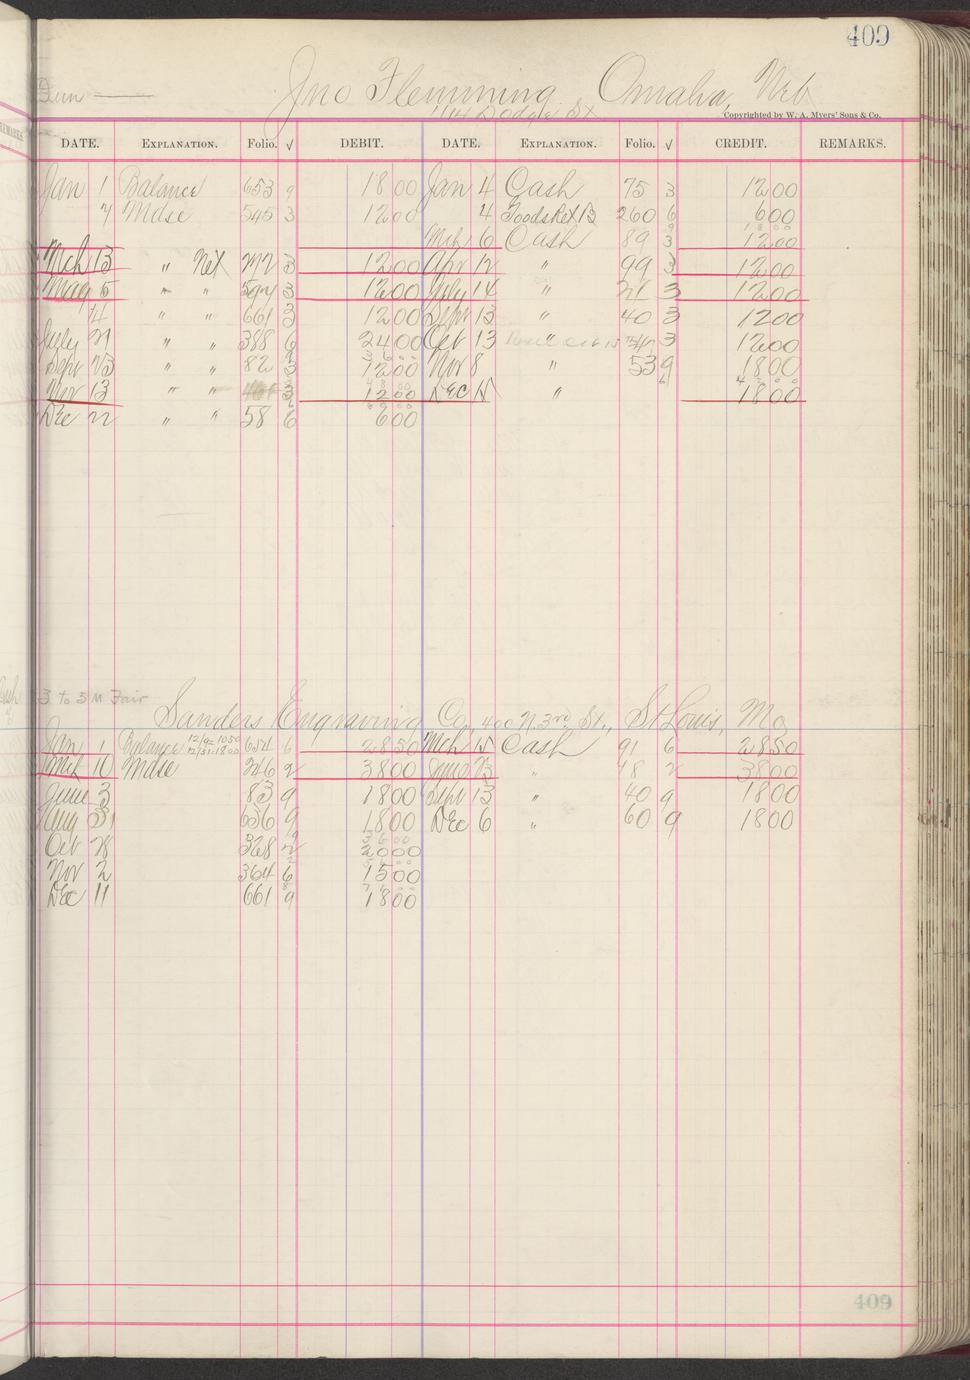 409
Dun — Jno Flemming Omaha, Neb
1114 Dodge St
Copyrighted by W. A. Myers' Sons & Co.
DATE. EXPLANATION. Folio. √ DEBIT. DATE. EXPLANATION. Folio. √ CREDIT. REMARKS.
Jan 1 Balance 653 9 18 00 Jan 4 Cash 75 3 12 00
7 Mdse 545 3 12 00 4 Goods Ret 260 6 6 00
Mch 6 Cash 89 3 12 00
Mch 13 " Net 3 12 00 Apr 12 " 99 3 12 00
May 5 " " 594 3 12 00 July 14 " 21 3 12 00
" " 661 3 12 00 Sept 13 " 40 3 12 00
July 21 " " 388 6 24 00 Oct 13 " 3 12 00
Sept 23 " " 82 3 12 00 Nov 8 " 53 9 18 00
Nov 13 " " 3 12 00 Dec 15 " 18 00
Dec 22 " " 58 6 6 00
3 to 5 M Fair
Sanders Engraving Co, 400 N. 3rd St., St Louis, Mo
Jan 1 Balance 12/31-18 00 654 6 28 50 Mch 15 Cash 91 6 28 50
Mch 10 Mdse 246 2 38 00 June 23 " 18 2 38 00
June 3 83 9 18 00 Sept 13 " 40 9 18 00
Aug 31 636 9 18 00 Dec 6 " 60 9 18 00
Oct 28 328 2 20 00
Nov 2 364 6 15 00
Dec 11 661 9 18 00
409